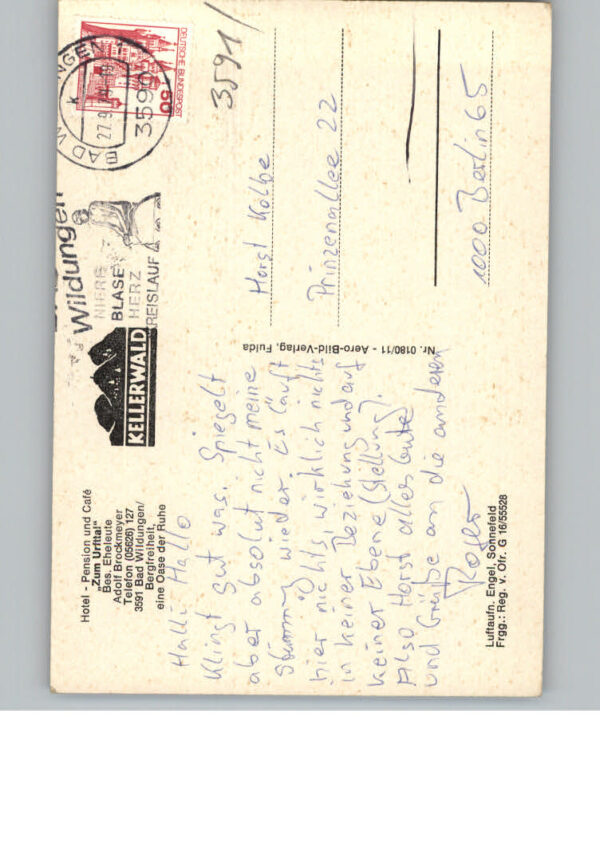 Hotel - Pension und Café
„Zum Urfttal"
Bes. Eheleute
Adolf Brockmeyer
Telefon (05626) 127
3591 Bad Wildungen/
Bergfreiheit,
eine Oase der Ruhe
KELLERWALD
Wildungen
NIERE
BLASE
HERZ
KREISLAUF
BAD W
NGEN
27.9.
3590
DEUTSCHE BUNDESPOST
50
3591/
Hallo Hallo
Klingt gut was. Spiegelt
aber absolut nicht meine
Stimmung wieder. Es läuft
hier nichts, wirklich nichts
in keiner Beziehung und auf
keiner Ebene (Stellung).
Also Horst alles Gute
und Grüße an die anderen
Horst Kolbe
Prinzenallee 22
1000 Berlin 65
Nr. 0180/11 - Aero-Bild-Verlag, Fulda
Luftaufn. Engel, Sonnefeld
Frgg.: Reg. v. Ofr. G 16/55528